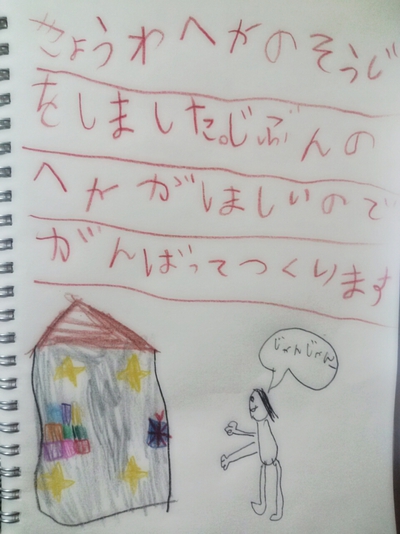 きょうわへやのそうじ
をしました。じぶんの
へやがほしいので
がんばってつくります
じゃんじゃん